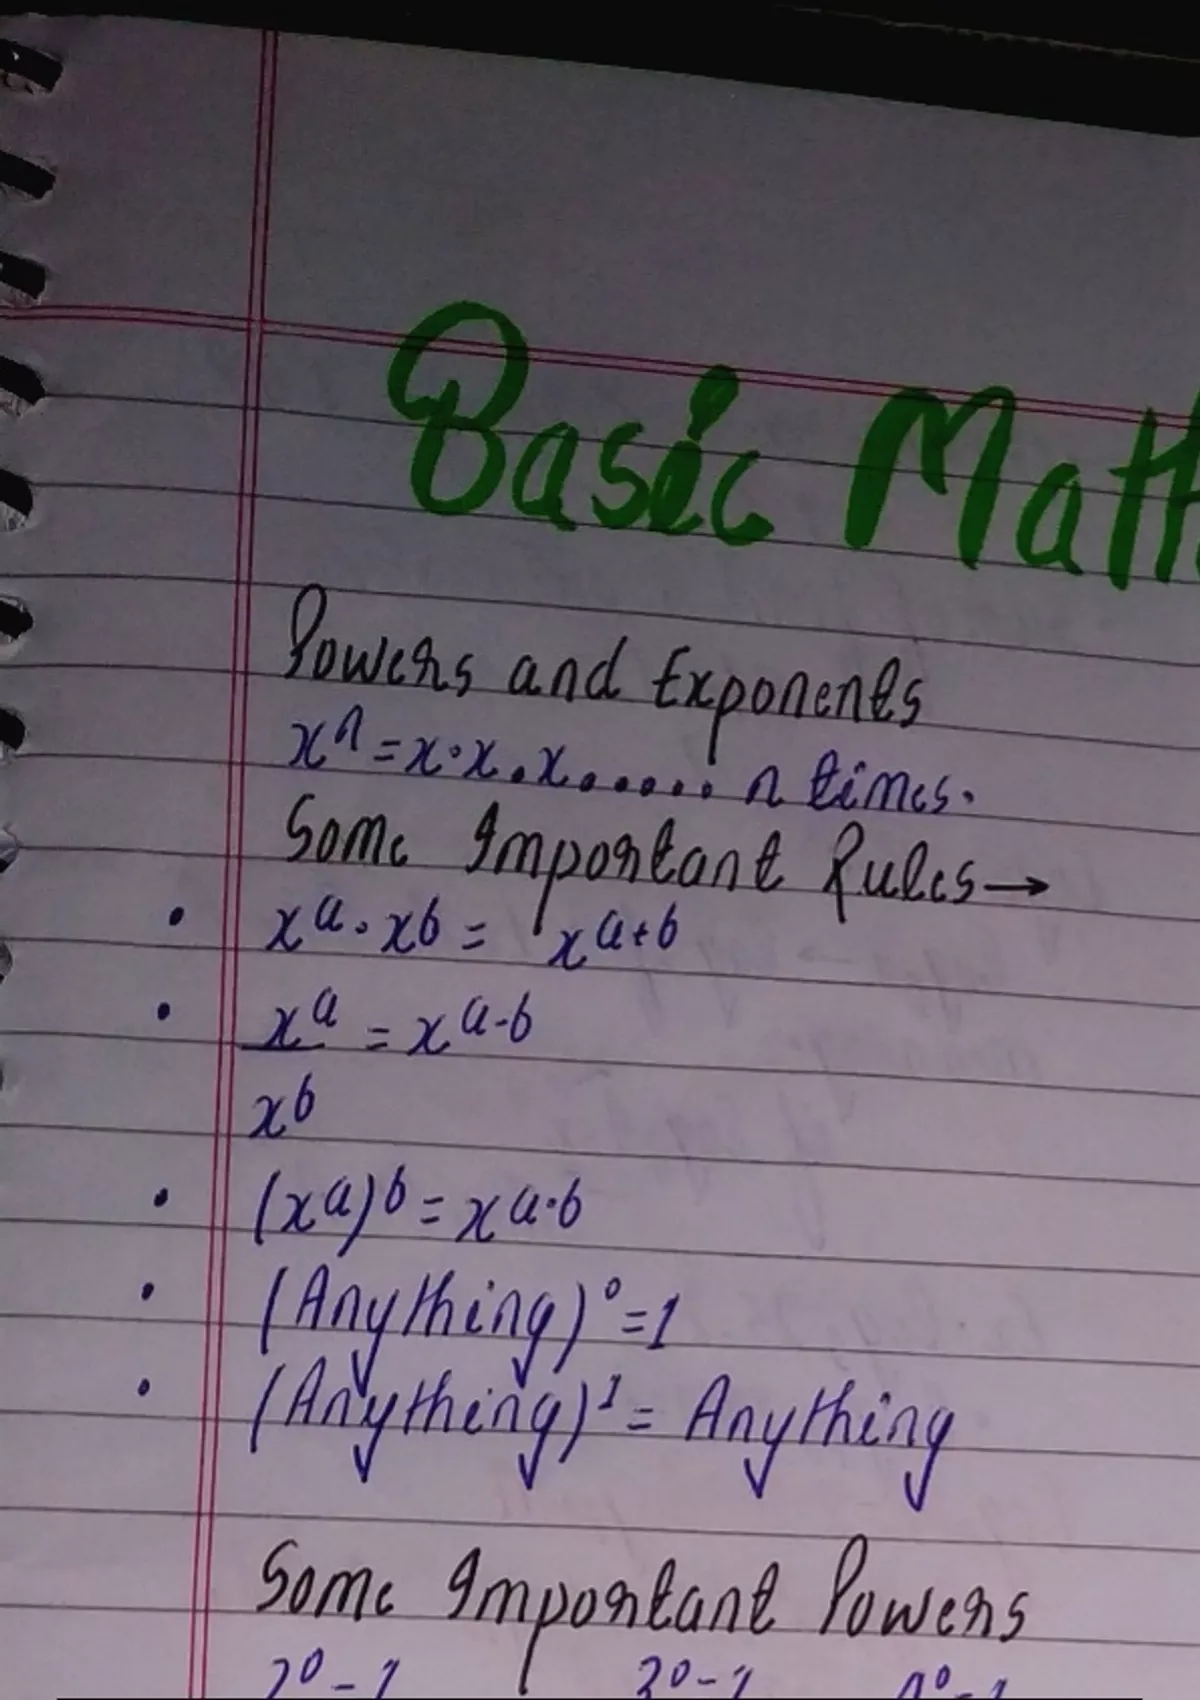 Basic Math
Powers and Exponents
xⁿ = x·x.x...... n times.
Some Important Rules→
• xᵃ·xᵇ = xᵃ⁺ᵇ
• xᵃ/xᵇ = xᵃ⁻ᵇ
• (xᵃ)ᵇ = xᵃ·ᵇ
• (Anything)⁰=1
• (Anything)¹= Anything
Some Important Powers